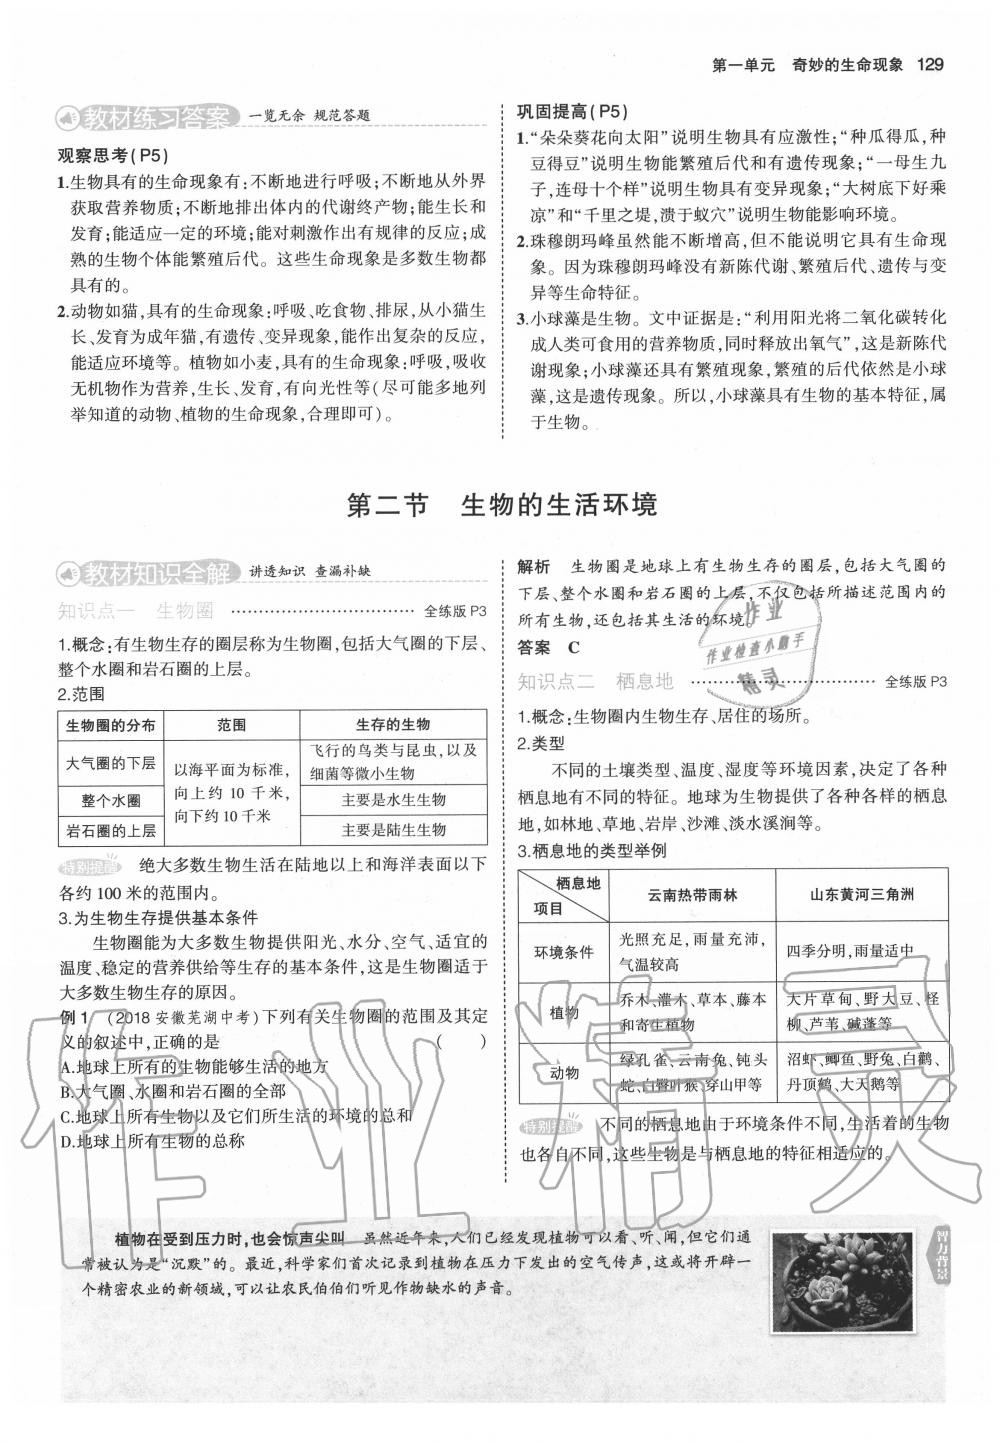 第一单元 奇妙的生命现象 129
教材练习答案 一览无余 规范答题
观察思考(P5)
1.生物具有的生命现象有:不断地进行呼吸;不断地从外界
获取营养物质;不断地排出体内的代谢终产物;能生长和
发育;能适应一定的环境;能对刺激作出有规律的反应;成
熟的生物个体能繁殖后代。这些生命现象是多数生物都
具有的。
2.动物如猫,具有的生命现象:呼吸、吃食物、排尿,从小猫生
长、发育为成年猫,有遗传、变异现象,能作出复杂的反应,
能适应环境等。植物如小麦,具有的生命现象:呼吸,吸收
无机物作为营养,生长、发育,有向光性等(尽可能多地列
举知道的动物、植物的生命现象,合理即可)。
巩固提高(P5)
1.“朵朵葵花向太阳”说明生物具有应激性;“种瓜得瓜,种
豆得豆”说明生物能繁殖后代和有遗传现象;“一母生九
子,连母十个样”说明生物具有变异现象;“大树底下好乘
凉”和“千里之堤,溃于蚁穴”说明生物能影响环境。
2.珠穆朗玛峰虽然能不断增高,但不能说明它具有生命现
象。因为珠穆朗玛峰没有新陈代谢、繁殖后代、遗传与变
异等生命特征。
3.小球藻是生物。文中证据是:“利用阳光将二氧化碳转化
成人类可食用的营养物质,同时释放出氧气”,这是新陈代
谢现象;小球藻还具有繁殖现象,繁殖的后代依然是小球
藻,这是遗传现象。所以,小球藻具有生物的基本特征,属
于生物。
第二节 生物的生活环境
教材知识全解 讲透知识 查漏补缺
知识点一 生物圈 ………………………… 全练版P3
1.概念:有生物生存的圈层称为生物圈,包括大气圈的下层、
整个水圈和岩石圈的上层。
2.范围
生物圈的分布 范围 生存的生物
大气圈的下层 以海平面为标准,向上约10千米,向下约10千米 飞行的鸟类与昆虫,以及细菌等微小生物
整个水圈 主要是水生生物
岩石圈的上层 主要是陆生生物
特别提醒 绝大多数生物生活在陆地以上和海洋表面以下
各约100米的范围内。
3.为生物生存提供基本条件
生物圈能为大多数生物提供阳光、水分、空气、适宜的
温度、稳定的营养供给等生存的基本条件,这是生物圈适于
大多数生物生存的原因。
例1 (2018安徽芜湖中考)下列有关生物圈的范围及其定
义的叙述中,正确的是 ( )
A.地球上所有的生物能够生活的地方
B.大气圈、水圈和岩石圈的全部
C.地球上所有生物以及它们所生活的环境的总和
D.地球上所有生物的总称
解析 生物圈是地球上有生物生存的圈层,包括大气圈的
下层、整个水圈和岩石圈的上层,不仅包括所描述范围内的
所有生物,还包括其生活的环境。
答案 C
知识点二 栖息地 ………………………… 全练版P3
1.概念:生物圈内生物生存、居住的场所。
2.类型
不同的土壤类型、温度、湿度等环境因素,决定了各种
栖息地有不同的特征。地球为生物提供了各种各样的栖息
地,如林地、草地、岩岸、沙滩、淡水溪涧等。
3.栖息地的类型举例
栖息地 项目 云南热带雨林 山东黄河三角洲
环境条件 光照充足,雨量充沛,气温较高 四季分明,雨量适中
植物 乔木、灌木、草本、藤本和寄生植物 大片草甸、野大豆、柽柳、芦苇、碱蓬等
动物 绿孔雀、云南兔、钝头蛇、白臀叶猴、穿山甲等 沼虾、鲫鱼、野兔、白鹳、丹顶鹤、大天鹅等
特别提醒 不同的栖息地由于环境条件不同,生活着的生物
也各自不同,这些生物是与栖息地的特征相适应的。
植物在受到压力时,也会惊声尖叫 虽然近年来,人们已经发现植物可以看、听、闻,但它们通
常被认为是“沉默”的。最近,科学家们首次记录到植物在压力下发出的空气传声,这或将开辟一
个精密农业的新领域,可以让农民伯伯们听见作物缺水的声音。
智力背景
作业
作业检查小助手
精灵
作业精灵